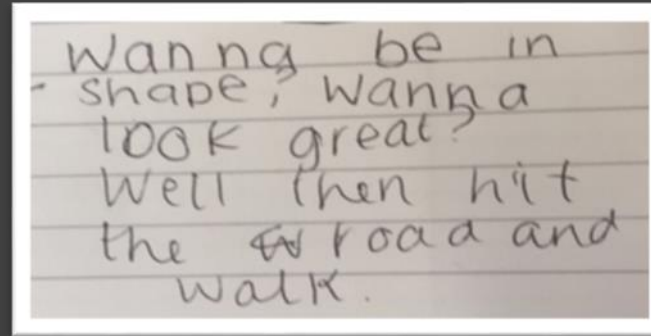 Wanna be in
- shape, wanna
look great?
Well then hit
the road and
walk.